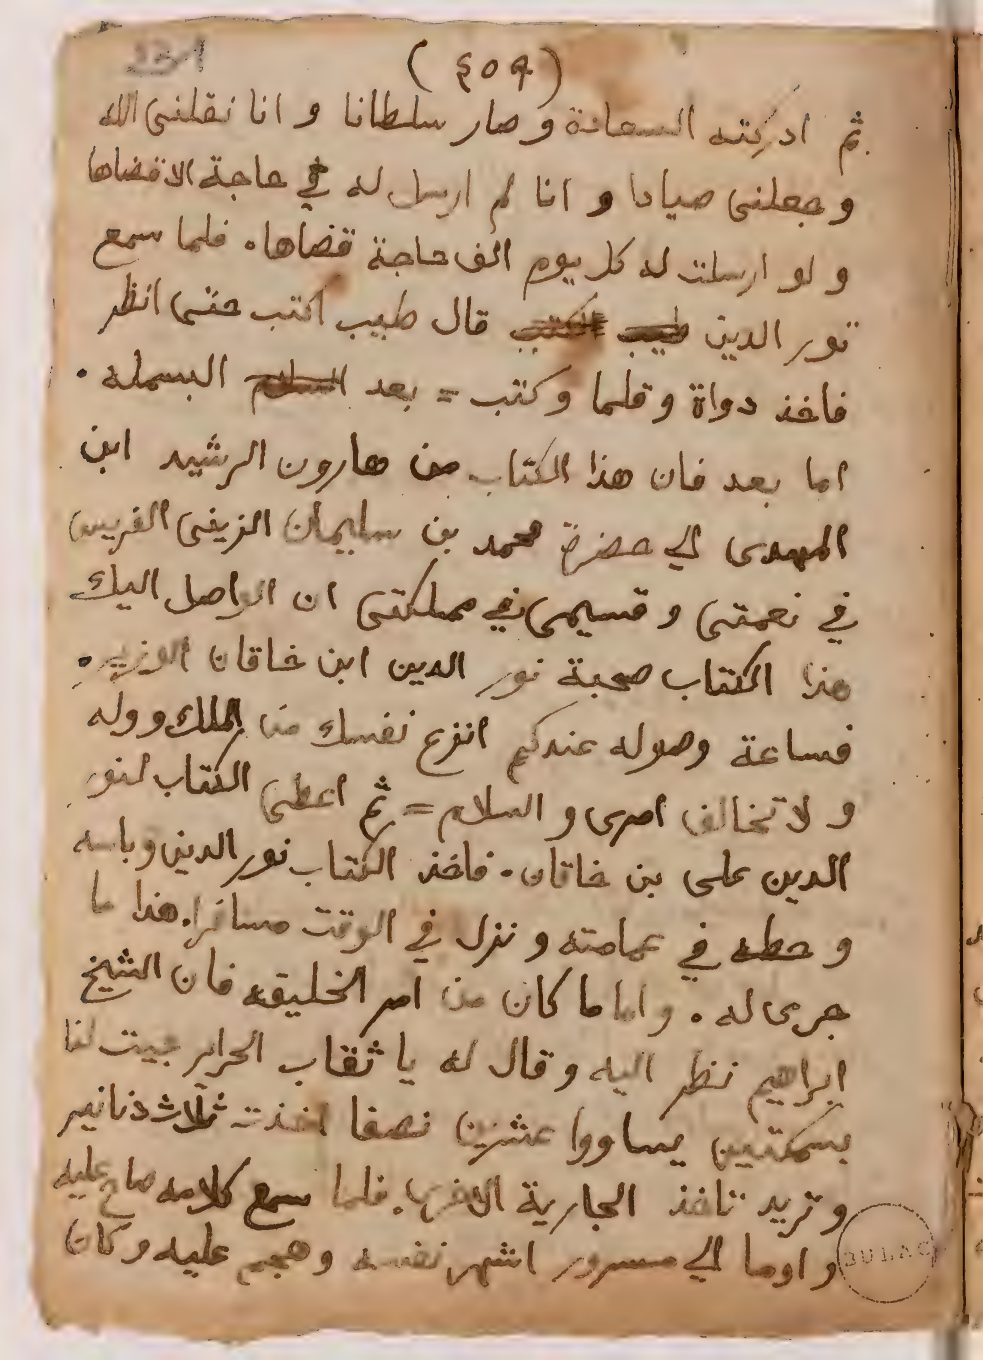 (٤٥٩)
ثم ادركته السعادة و صار سلطانا و انا نقلني الله
و جعلني صيادا و انا لم ارسل له في حاجة الا قضاها
و لو ارسلت له كل يوم الف حاجة قضاها. فلما سمع
نور الدين طيب اكتب قال طيب اكتب حتى انظر
فاخذ دواة و قلما و كتب = بعد السلام البسملة .
اما بعد فان هذا الكتاب من هارون الرشيد ابن
المهدى الي حضرة محمد بن سليمان الزيني
في نعمتي و قسيمى في مملكتي ان الواصل اليك
هذا الكتاب صحبة نور الدين ابن خاقان الوزير.
فساعة وصوله عندكم انزع نفسك من الملك و وله
و لا تخالف امرى و السلام = ثم اعطى الكتاب لنور
الدين على بن خاقان. فاخذ الكتاب نور الدين و باسه
و حطه في عمامته و نزل في الوقت مسافرا. هذا ما
جرى له . و اما ما كان من امر الخليفه فان الشيخ
ابراهيم نظر اليه و قال له يا ثقاب الحراير جيت لنا
بسمكتين يساووا عشرين نصفا اخذت ثلاث دنانير
و تريد تاخذ الجارية الاخرى. فلما سمع كلامه صاح عليه
و اوما الي مسرور اشهر نفسه و هجم عليه و كان
BULAC